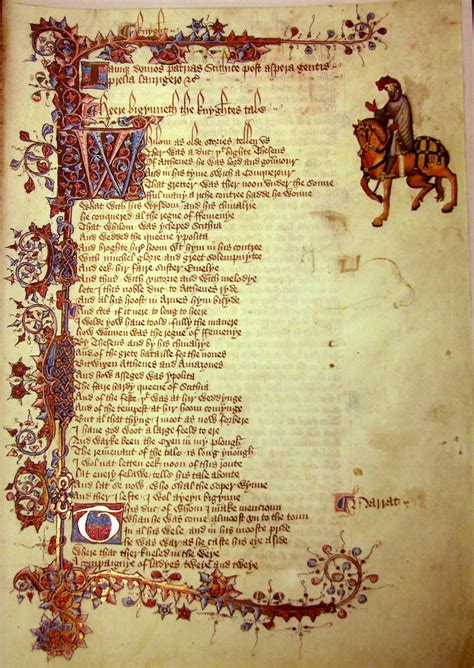 Iamque domos patrias Scithice post aspera gentis
prelia laurigero &c
Heere bigynneth the knyghtes tale
Whilom as olde stories tellen us
Ther was a duc þt highte Theseus
Of Atthenes he was lord and gouernour
And in his tyme swich a Conquerour
That gretter was ther noon under the sonne
fful many a riche contree hadde he wonne
What with his wysdom and his chiualrie
he conquered al the regne of ffemenye
That whilom was ycleped Scithia
And wedded the queene ypolita
And broghte hir hoom with hym in his contree
With muchel glorie and greet solempnytee
And eek hir faire suster Emelye
And thus with victorie and with melodye
lete I this noble duc to Atthenes ryde
And al his hoost in Armes hym bisyde
And certes if it nere to long to heere
I wolde yow haue toold fully the manere
how wonnen was the regne of ffemenye
By Theseus and by his chiualrye
And of the grete bataille for the nones
Bitwixen Atthenes and Amazones
And how asseged was ypolita
The faire hardy queene of Scithia
And of the feste þt was at hir weddynge
And of the tempest at hir hoom comynge
But al that thyng I moot as now forbere
I haue god woot a large feeld to ere
And wayke been the oxen in my plough
The remenant of the tale is long ynough
I wol nat letten eek noon of this route
lat euery felawe telle his tale aboute
And lat se now who shal the soper wynne
And ther I lefte I wol ayeyn bigynne
This duc of whom I make mencioun
Whan he was come almoost unto the toun
In al his wele and in his mooste pride
he was war as he caste his eye aside
Where that ther kneled in the weye
A compaignye of ladyes tweye and tweye
Narrat